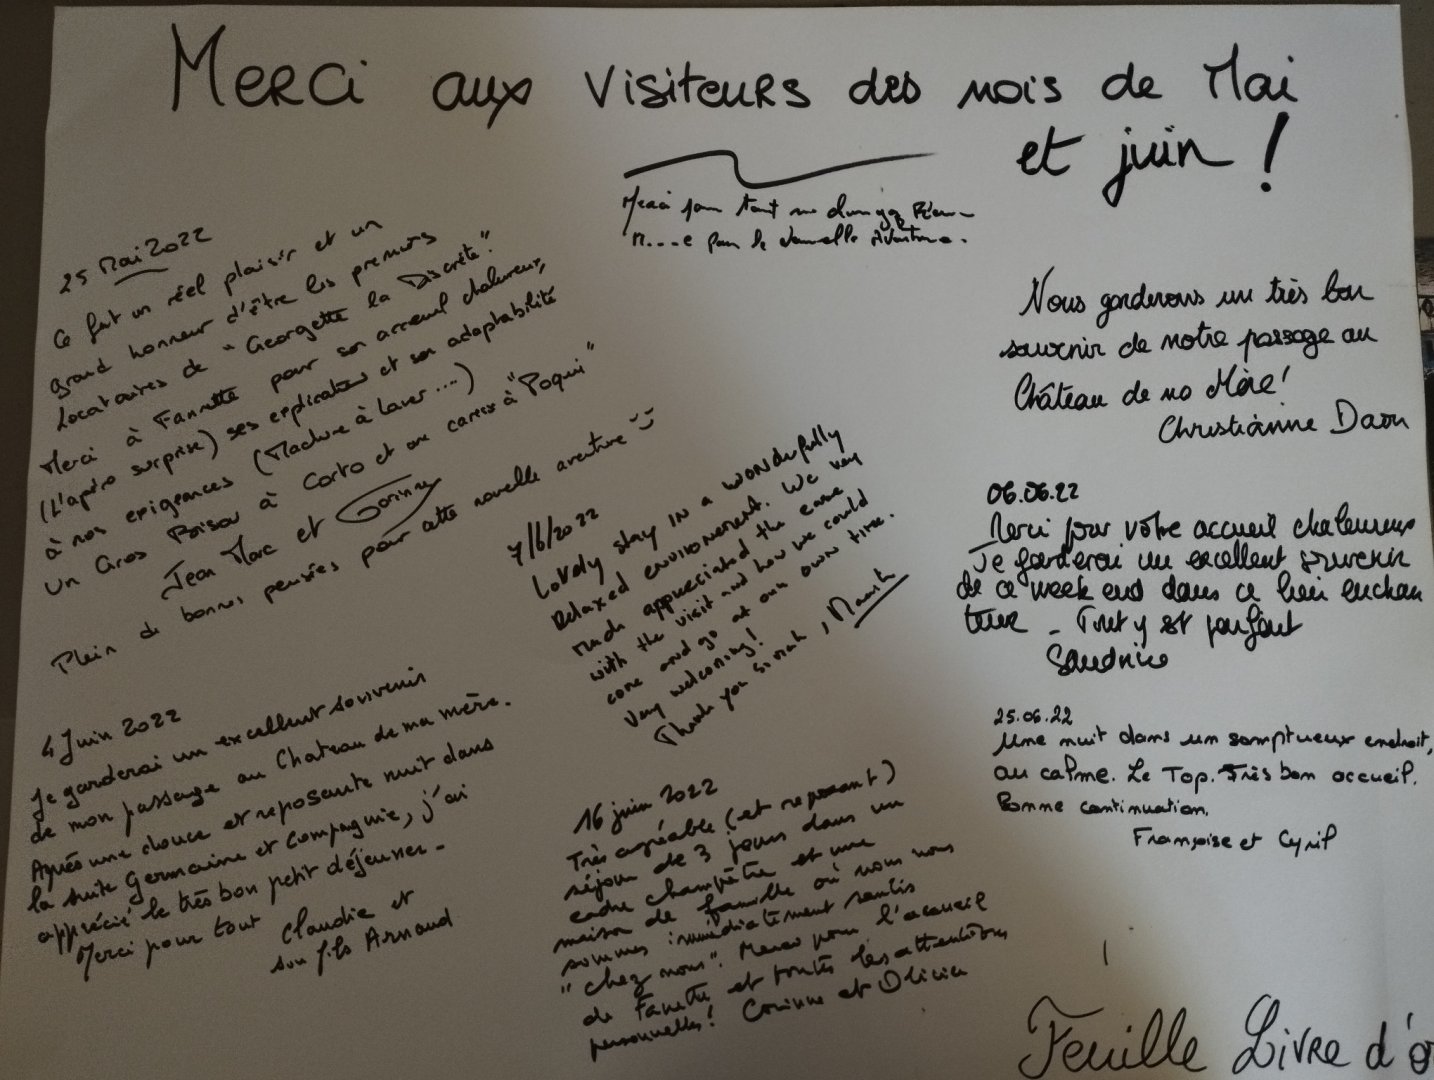 Merci aux visiteurs des mois de Mai
et juin !
Merci pour tout
pour la nouvelle aventure.
25 Mai 2022
Ce fut un réel plaisir et un
grand honneur d'être les premiers
locataires de "Georgette la Discrète".
Merci à Fannette pour son accueil chaleureux,
(L'apéro surprise) ses explications et son adaptabilité
à nos exigeances (Machine à laver ....)
Un Gros Bisou à Corto et une caresse à "Poqui"
Jean Marc et Corinne
Plein de bonnes pensées pour cette nouvelle aventure
4 Juin 2022
Je garderai un excellent souvenir
de mon passage au Chateau de ma mère.
Après une douce et reposante nuit dans
la suite Germaine et Compagnie, j'ai
apprécié le très bon petit déjeuner.
Merci pour tout
Claudie et
son fils Arnaud
7/6/2022
Lovely stay in a wonderfully
relaxed environment. We very
much appreciated the ease
with the visit and how we could
come and go at our own time.
Very welcoming!
Thank you
16 juin 2022
Très agréable (et reposant)
séjour de 3 jours dans un
cadre champêtre et une
maison de famille où nous nous
sommes immédiatement sentis
"chez nous". Merci pour l'accueil
de Fanette et toutes les attentions
personnelles! Corinne et Olivier
Nous garderons un très bon
souvenir de notre passage au
Château de ma Mère!
Christianne
06.06.22
Merci pour votre accueil chaleureux
Je garderai un excellent souvenir
de ce week end dans ce lieu enchan
teur - Tout y est parfait
Sandrine
25.06.22
Une nuit dans un somptueux endroit,
au calme. Le Top. Très bon accueil.
Bonne continuation.
Françoise et Cyril
Feuille Livre d'o